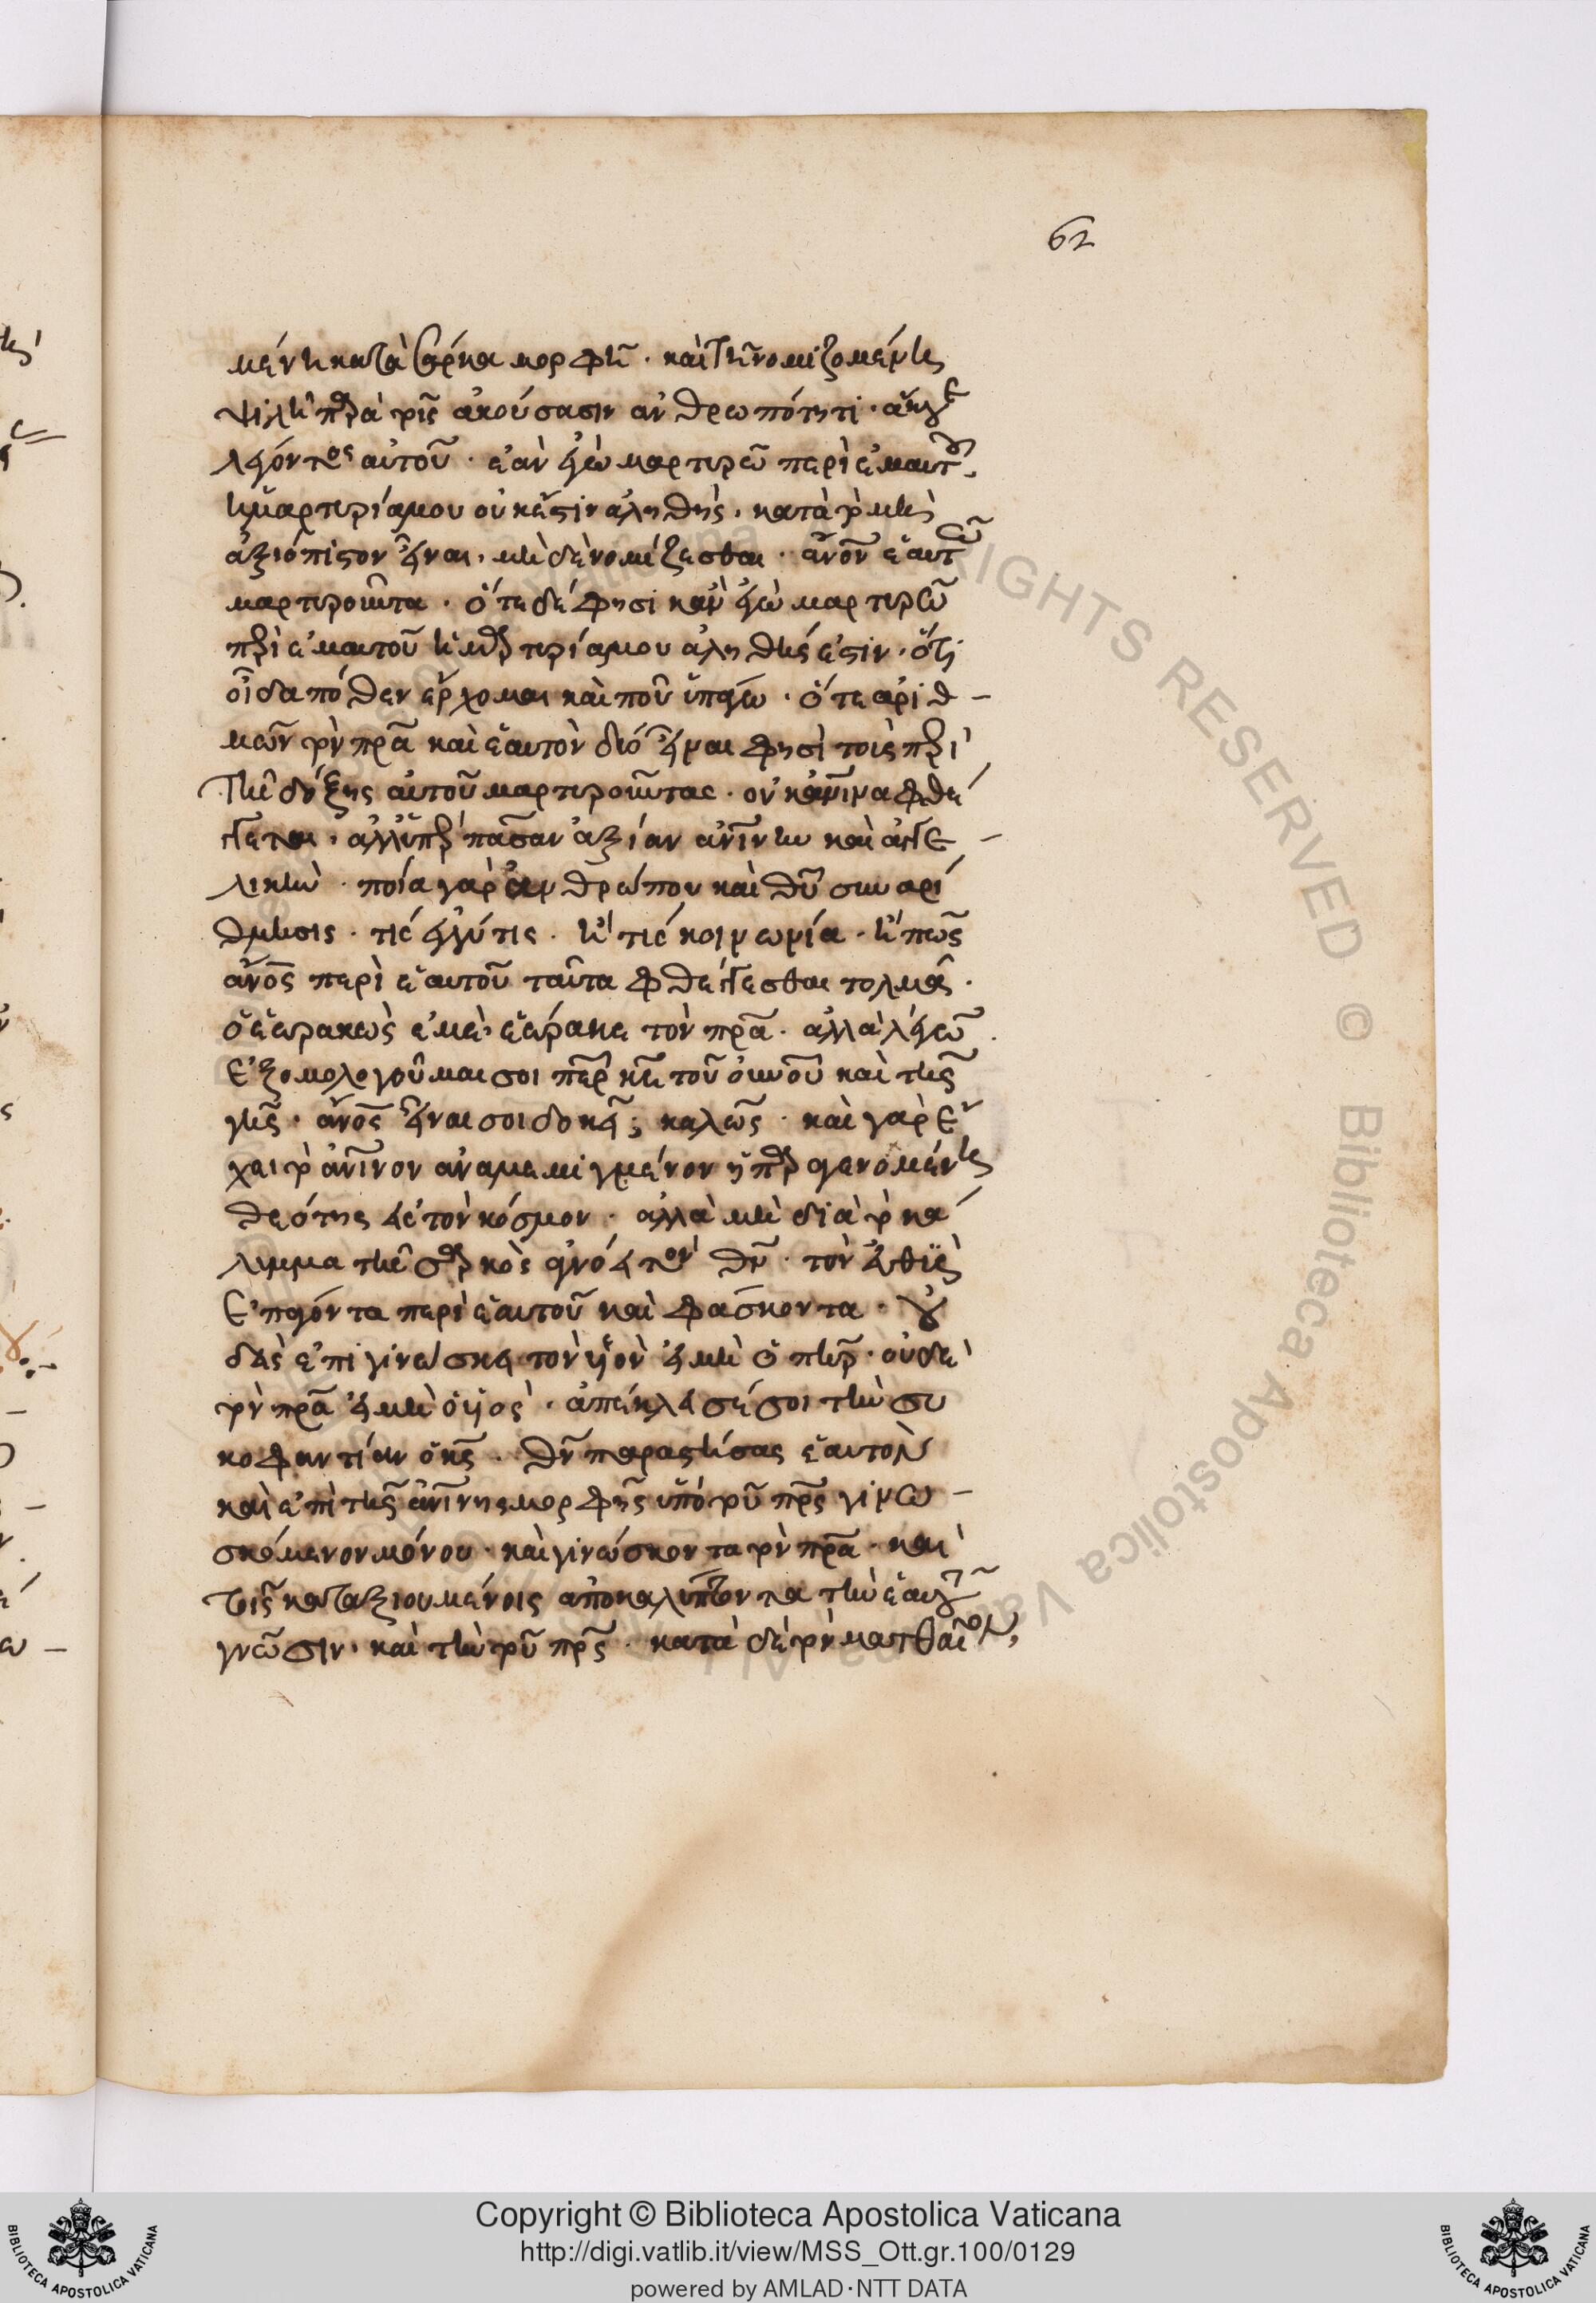 62
μένη κατὰ σάρκα μορφῆ · καὶ τῆ νομιζομένη
ψιλῆ παρὰ τοῖς ἀκούσασιν ἀνθρωπότητι ·
λέγοντος αὐτοῦ · ἐὰν ἐγὼ μαρτυρῶ περὶ ἐμαυτοῦ
ἡ μαρτυρία μου οὐκ ἔστιν ἀληθής · κατὰ τὸ μὴ
ἀξιόπιστον εἶναι · μὴ δὲ νομίζεσθαι · ἄνον ἑαυτῶ
μαρτυροῦντα · ὅτε δέ φησι κἂν ἐγὼ μαρτυρῶ
περὶ ἐμαυτοῦ ἡ μαρτυρία μου ἀληθής ἐστιν · ὅτι
οἶδα πόθεν ἔρχομαι καὶ ποῦ ὑπάγω · ὅτε ἀριθ –
μῶν τὸν πρα καὶ ἑαυτὸν δύο εἶναί φησὶ τοὺς περὶ
τῆς δόξης αὐτοῦ μαρτυροῦντας · οὐκ ἀνινα φθέ
γγεται · ἀλλ' ὑπὲρ πᾶσαν ἀξίαν ἀνινην καὶ ἀγγε –
λικὴν · ποία γὰρ ἀνθρώπου καὶ θυ συναρί
θμησις · τίς ἐγγύτις · ἢ τίς κοινωνία · ἢ πῶς
ἄνος περὶ ἑαυτοῦ ταῦτα φθέγγεσθαι τολμᾶ ·
ὁ ἑωρακὼς ἐμὲ · ἑώρακε τὸν πρα · ἀλλὰ λέγων ·
ἐξομολογοῦμαι σοι περ κε τοῦ οὐνοῦ καὶ τῆς
γῆς · ἄνος εἶναι σοι δοκεῖ ; καλῶς · καὶ γὰρ ἔ
χει τὸ ἀνινον ἀναμεμιγμένον ὑπὲρ γενομένης
θεότης εἰς τὸν κόσμον · ἀλλὰ μὴ διὰ τὸ κά
λυμμα τῆς σαρκὸς ἀγνόει τὸν θν · τὸν εὐθὺς
ἐπάγοντα περὶ ἑαυτοῦ καὶ φάσκοντα · οὐ
δεὶς ἐπιγινώσκει τὸν υἱὸν εἰ μὴ ὁ πηρ · οὐδὲ
τὸν πρα εἰ μὴ ὁ υἱὸς · ἀπέκλεισέ σοι τὴν συ
κοφαντίαν ὁ κς · θν παραστήσας ἑαυτὸν
καὶ ἐπὶ τῆς ἀνινης μορφῆς ὑπὸ τοῦ πρς γινω –
σκόμενον μόνου · καὶ γινώσκοντα τὸν πρα · καὶ
τοῖς καταξιουμένοις ἀποκαλύπτοντα τὴν ἑαυτοῦ
γνῶσιν · καὶ τὴν τοῦ πρς · κατὰ δὲ τὸν ματθαῖον,
Copyright © Biblioteca Apostolica Vaticana
http://digi.vatlib.it/view/MSS_Ott.gr.100/0129
powered by AMLAD·NTT DATA
BIBLIOTECA APOSTOLICA VATICANA
BIBLIOTECA APOSTOLICA VATICANA